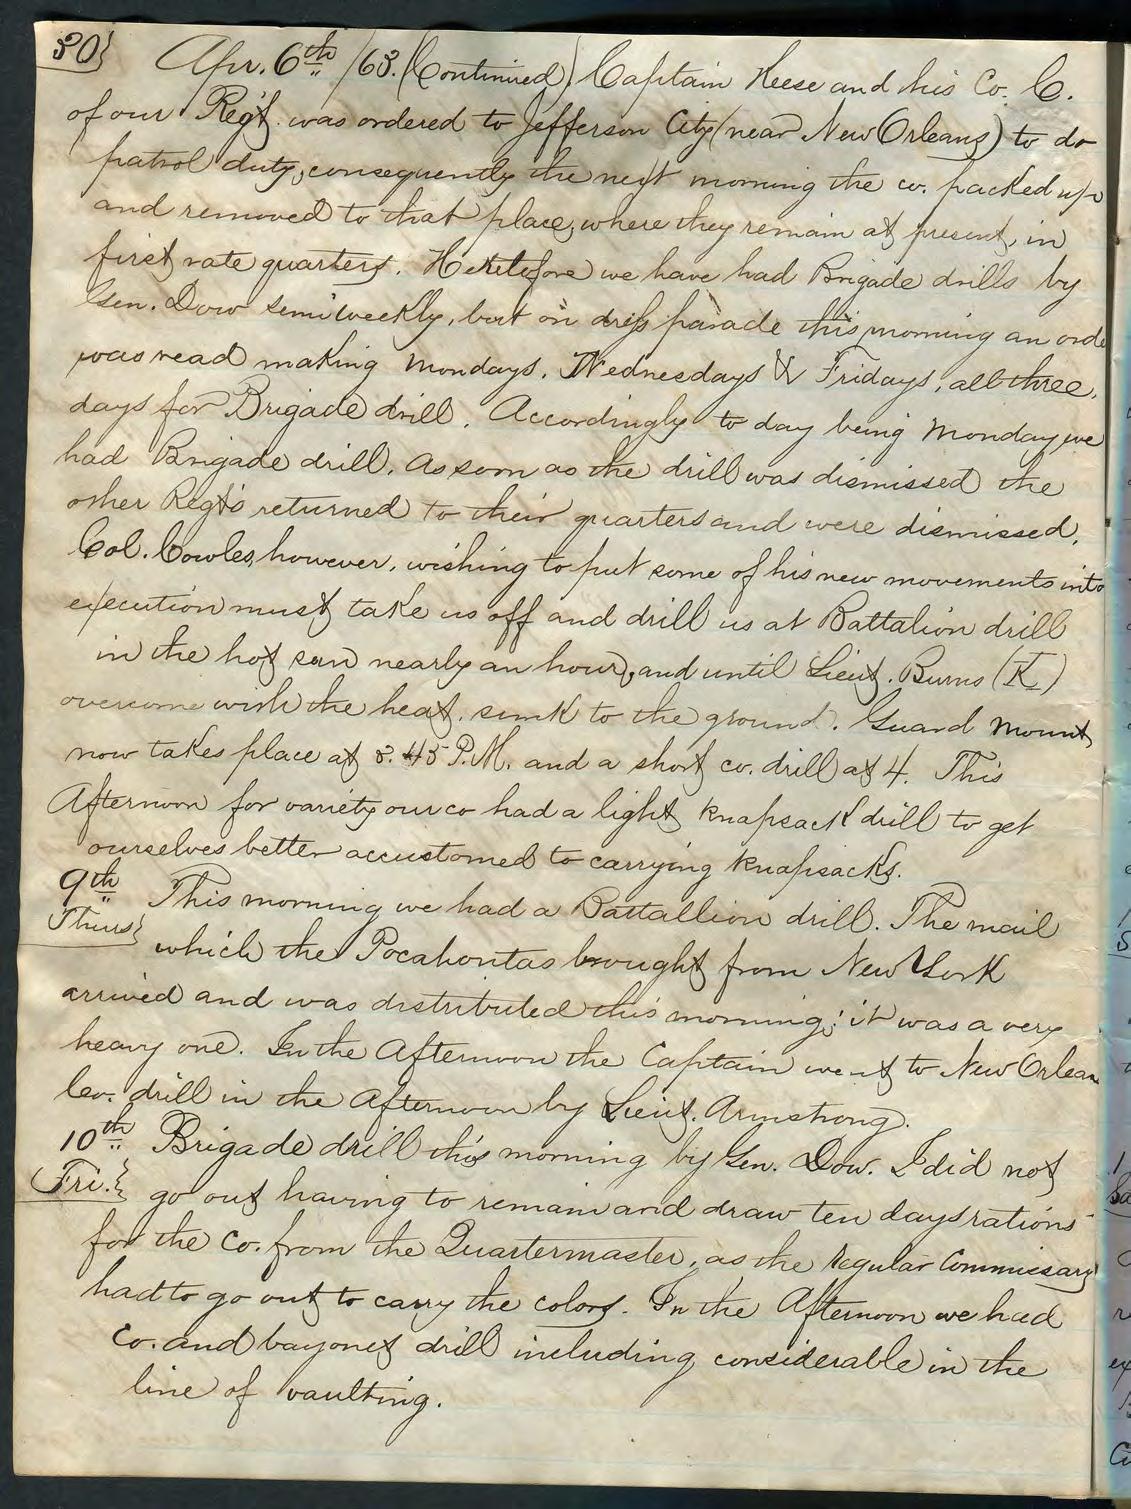 30} Apr. 6th /63. (Continued) Captain Keese and his Co. C.
of our Reg't. was ordered to Jefferson City (near New Orleans) to do
patrol duty, consequently the next morning the co. packed up
and removed to that place, where they remain at present, in
first rate quarters. Heretofore we have had Brigade drills by
Gen. Dow semiweekly, but on dress parade this morning an orde
was read making Mondays, Wednesdays & Fridays, all three,
days for Brigade drill. Accordingly to day being Monday, we
had Brigade drill. As soon as the drill was dismissed the
other Regt's returned to their quarters and were dismissed,
Col. Cowles, however, wishing to put some of his new movements into
execution must take us off and drill us at Battalion drill
in the hot sun nearly an hour, and until Lieut. Burns (K)
overcome with the heat, sunk to the ground. Guard Mount
now takes place at 8.45 P.M. and a short co. drill at 4. This
Afternoon for variety our co had a light knapsack drill to get
ourselves better accustomed to carrying knapsacks.
9th This morning we had a Battallion drill. The mail
Thurs} which the Pocahontas brought from New York
arrived and was distributed this morning; it was a very
heavy one. In the Afternoon the Captain went to New Orlean
Co. drill in the Afternoon by Lieut. Armstrong.
10th Brigade drill this morning by Gen. Dow. I did not
Fri.} go out having to remain and draw ten days rations
for the Co. from the Quartermaster, as the regular Commissary
had to go out to carry the colors. In the Afternoon we had
Co. and bayonet drill including considerable in the
line of vaulting.